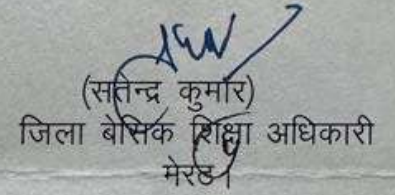 (सतेन्द्र कुमार)
जिला बेसिक शिक्षा अधिकारी
मेरठ।